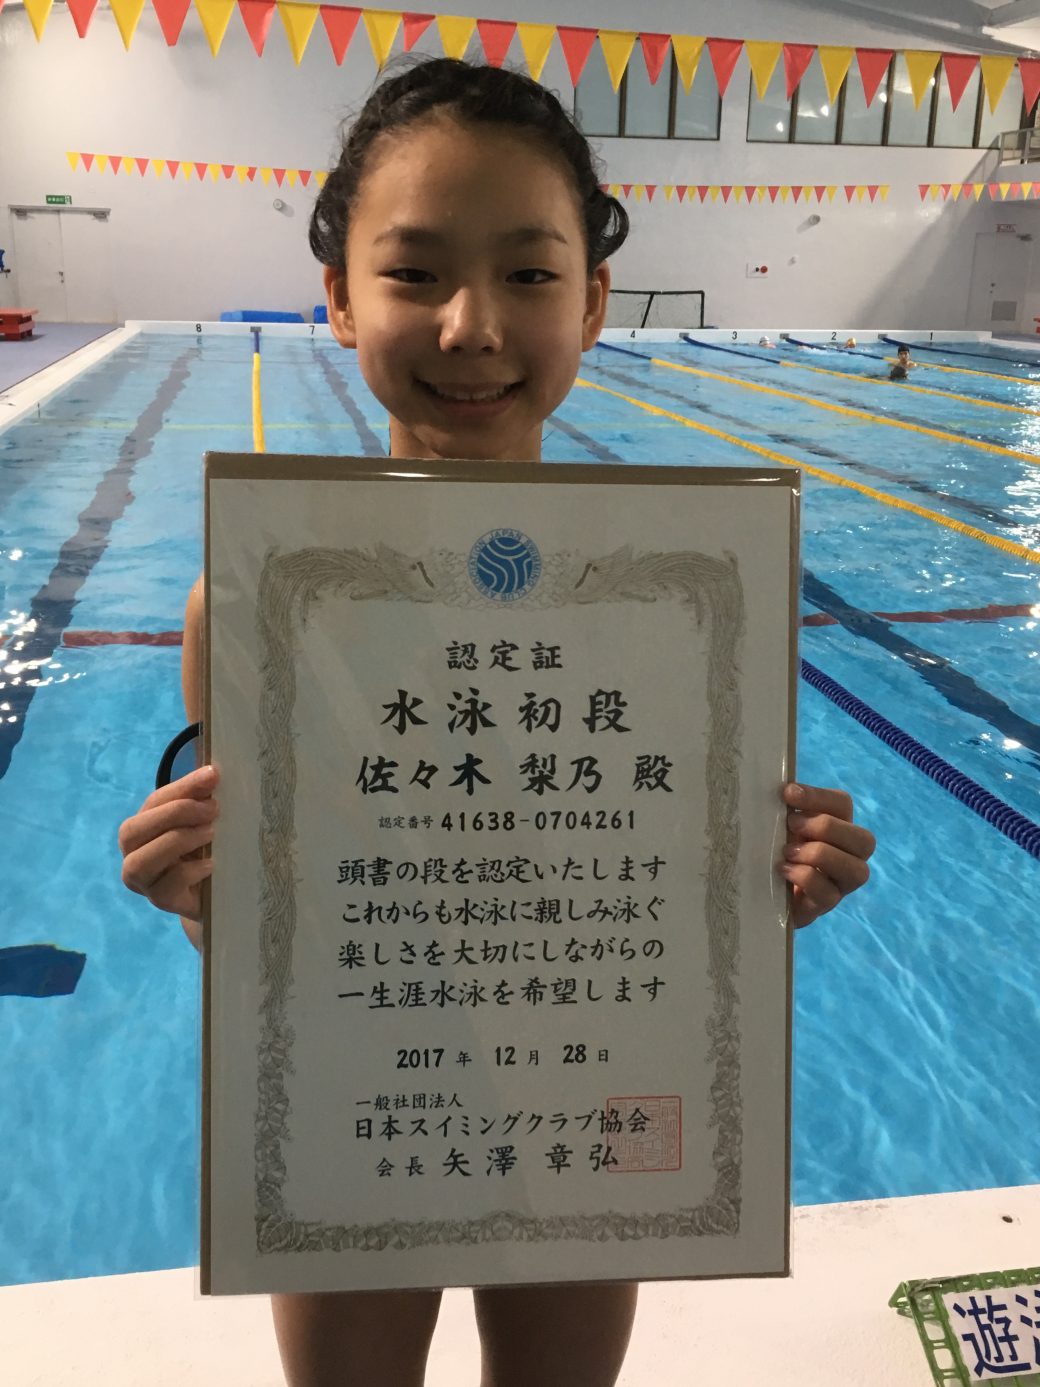 8 7 4 3 2 1
JAPAN SWIMMING CLUB ASSOCIATION
認定証
水泳初段
佐々木 梨乃 殿
認定番号 41638-0704261
頭書の段を認定いたします
これからも水泳に親しみ泳ぐ
楽しさを大切にしながらの
一生涯水泳を希望します
2017 年 12 月 28 日
一般社団法人
日本スイミングクラブ協会
会長 矢澤 章弘
遊泳